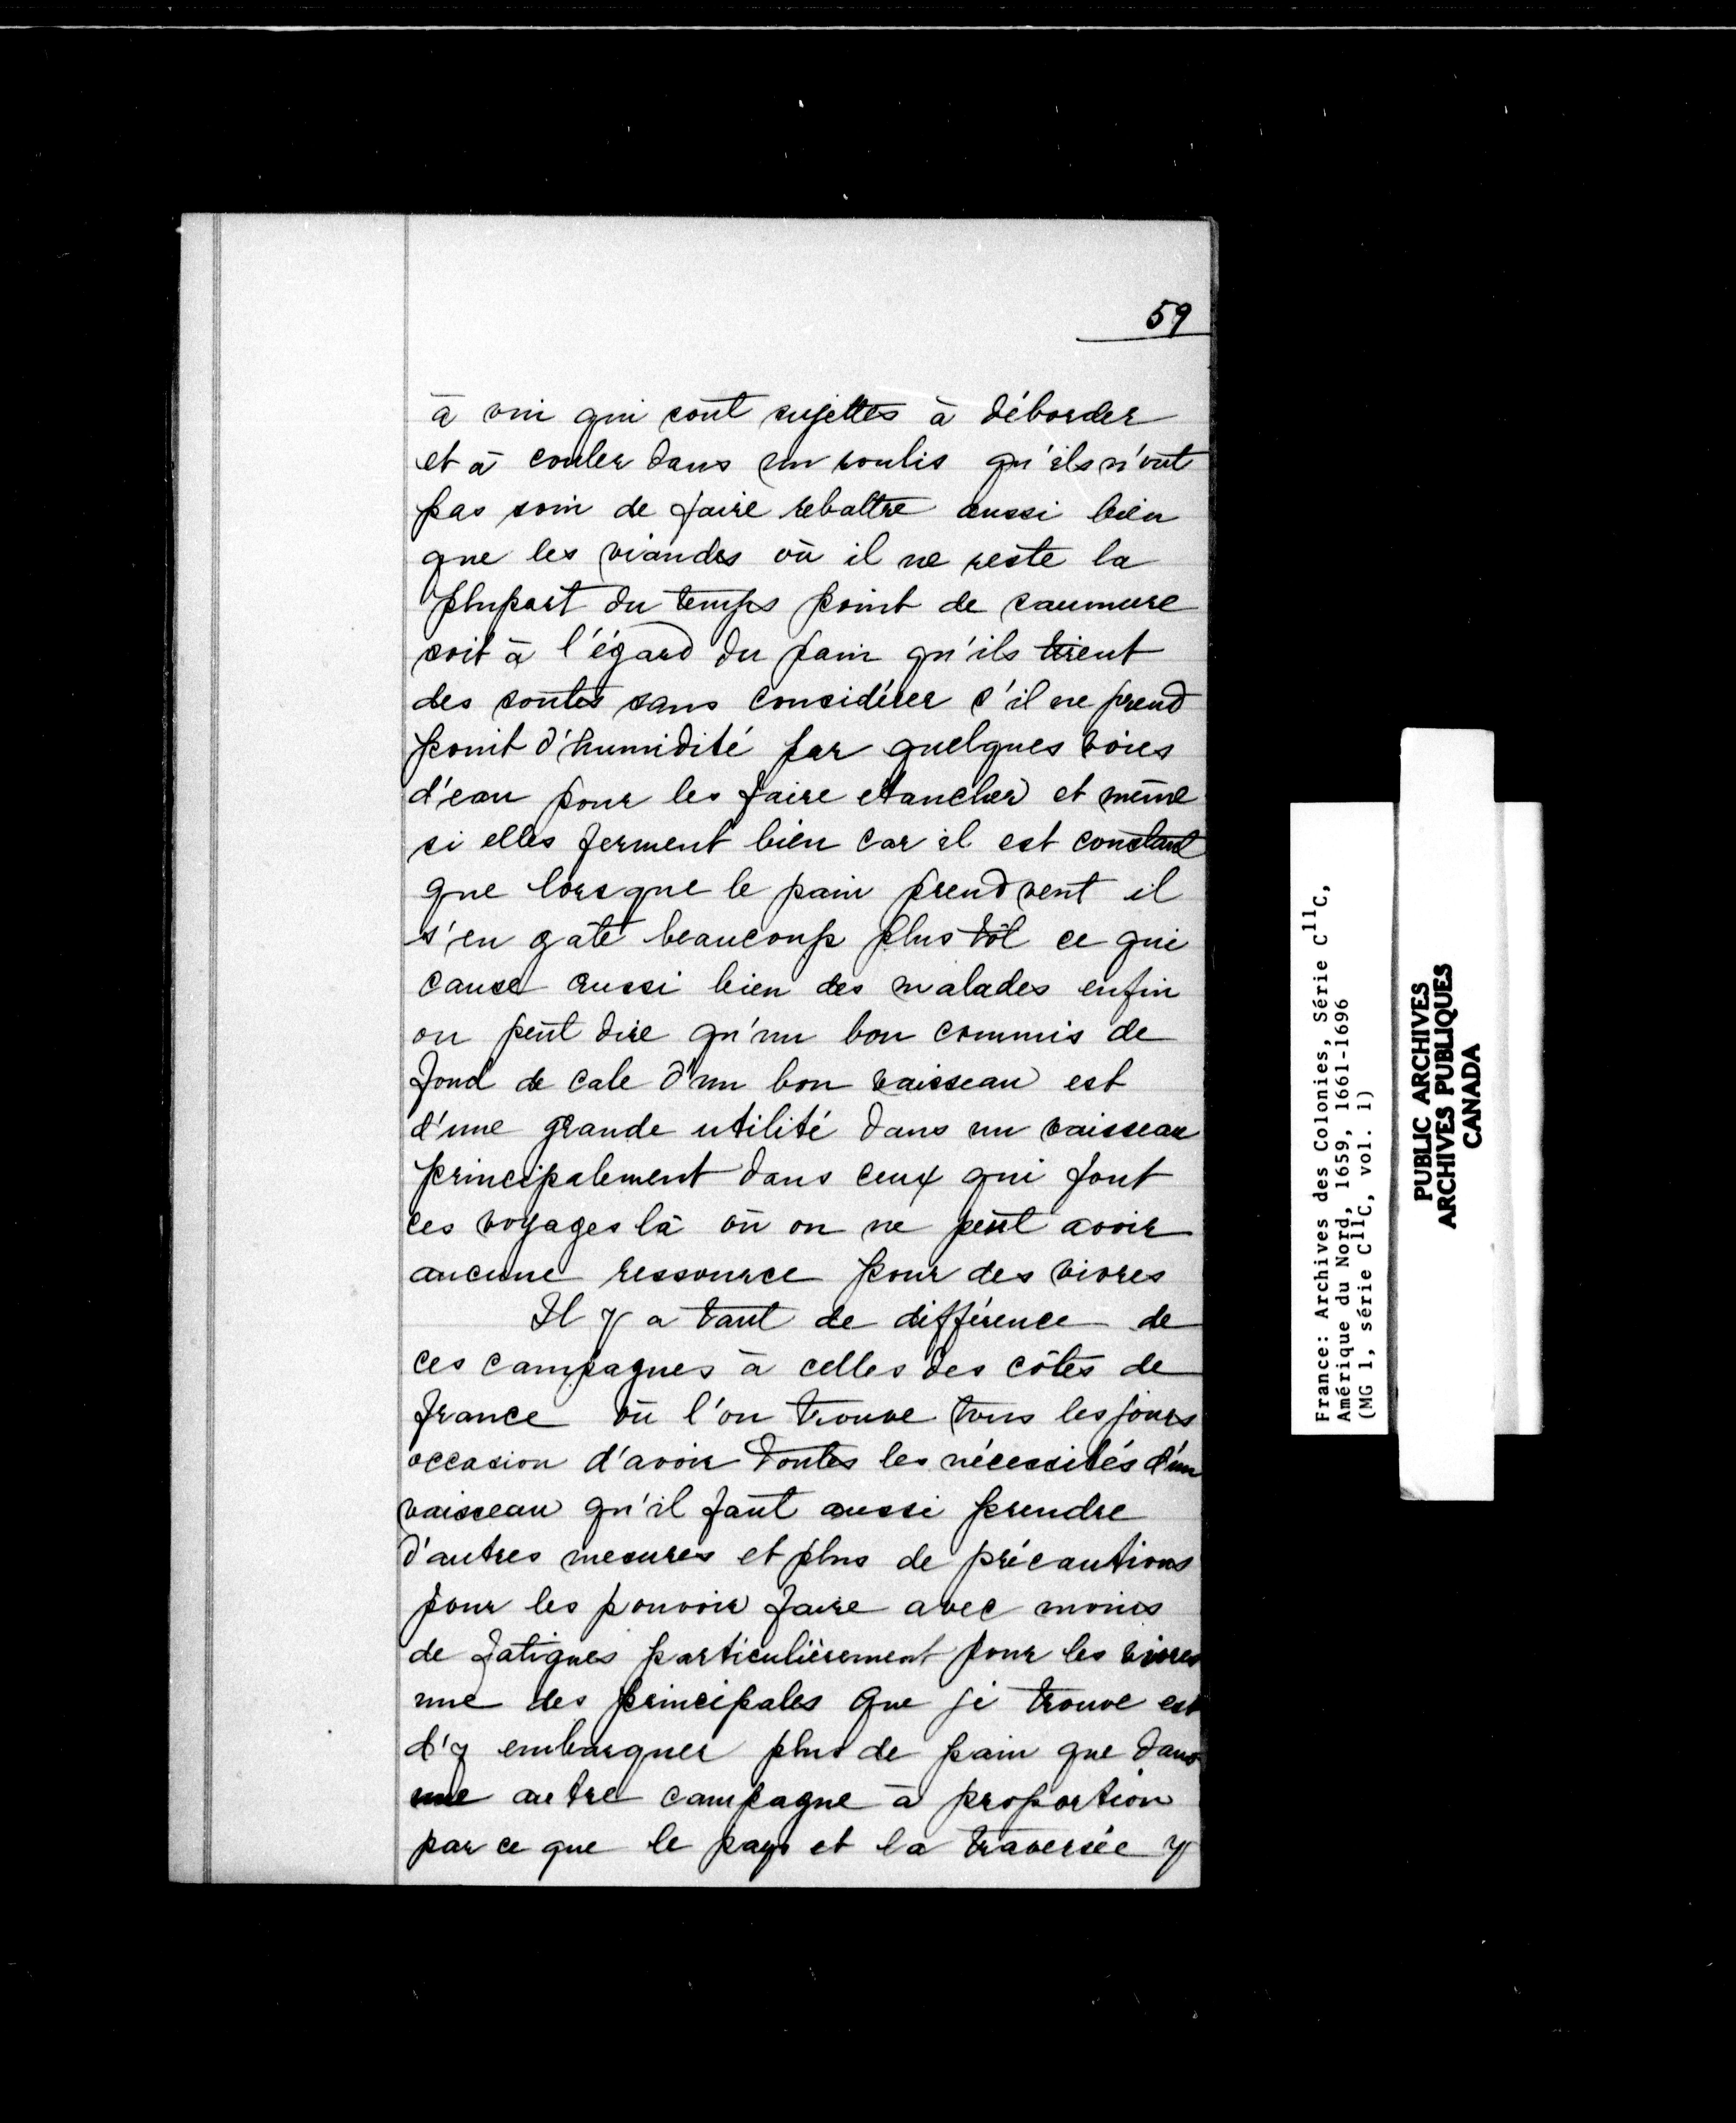 59
à vin qui sont sujettes à déborder
et à couler dans un roulis qu'ils n'ont
pas soin de faire rebattre aussi bien
que les viandes où il ne reste la
plupart du temps point de saumure
soit à l'égard du pain qu'ils tirent
des soutes sans considérer s'il ne prend
point d'humidité par quelques voies
d'eau pour les faire etancher et même
si elles ferment bien car il est constant
que lorsque le pain prend vent il
s'en gâte beaucoup plus tôt ce qui
cause aussi bien des malades enfin
on peut dire qu'un bon commis de
fond de cale d'un bon vaisseau est
d'une grande utilité dans un vaisseau
principalement dans ceux qui font
ces voyages là où on ne peut avoir
aucune ressource pour des vivres
Il y a tant de différence de
ces campagnes à celles des côtes de
france où l'on trouve tous les jours
occasion d'avoir toutes les nécessités d'un
vaisseau qu'il faut aussi prendre
d'autres mesures et plus de précautions
pour les pouvoir faire avec moins
de fatigues particulièrement pour les vivres
une des principales que je trouve est
d'y embarquer plus de pain que dans
une autre campagne à proportion
par ce que le pays et la traversée y
France: Archives des Colonies, Série C11C,
Amérique du Nord, 1659, 1661-1696
(MG 1, série C11C, vol. 1)
PUBLIC ARCHIVES
ARCHIVES PUBLIQUES
CANADA